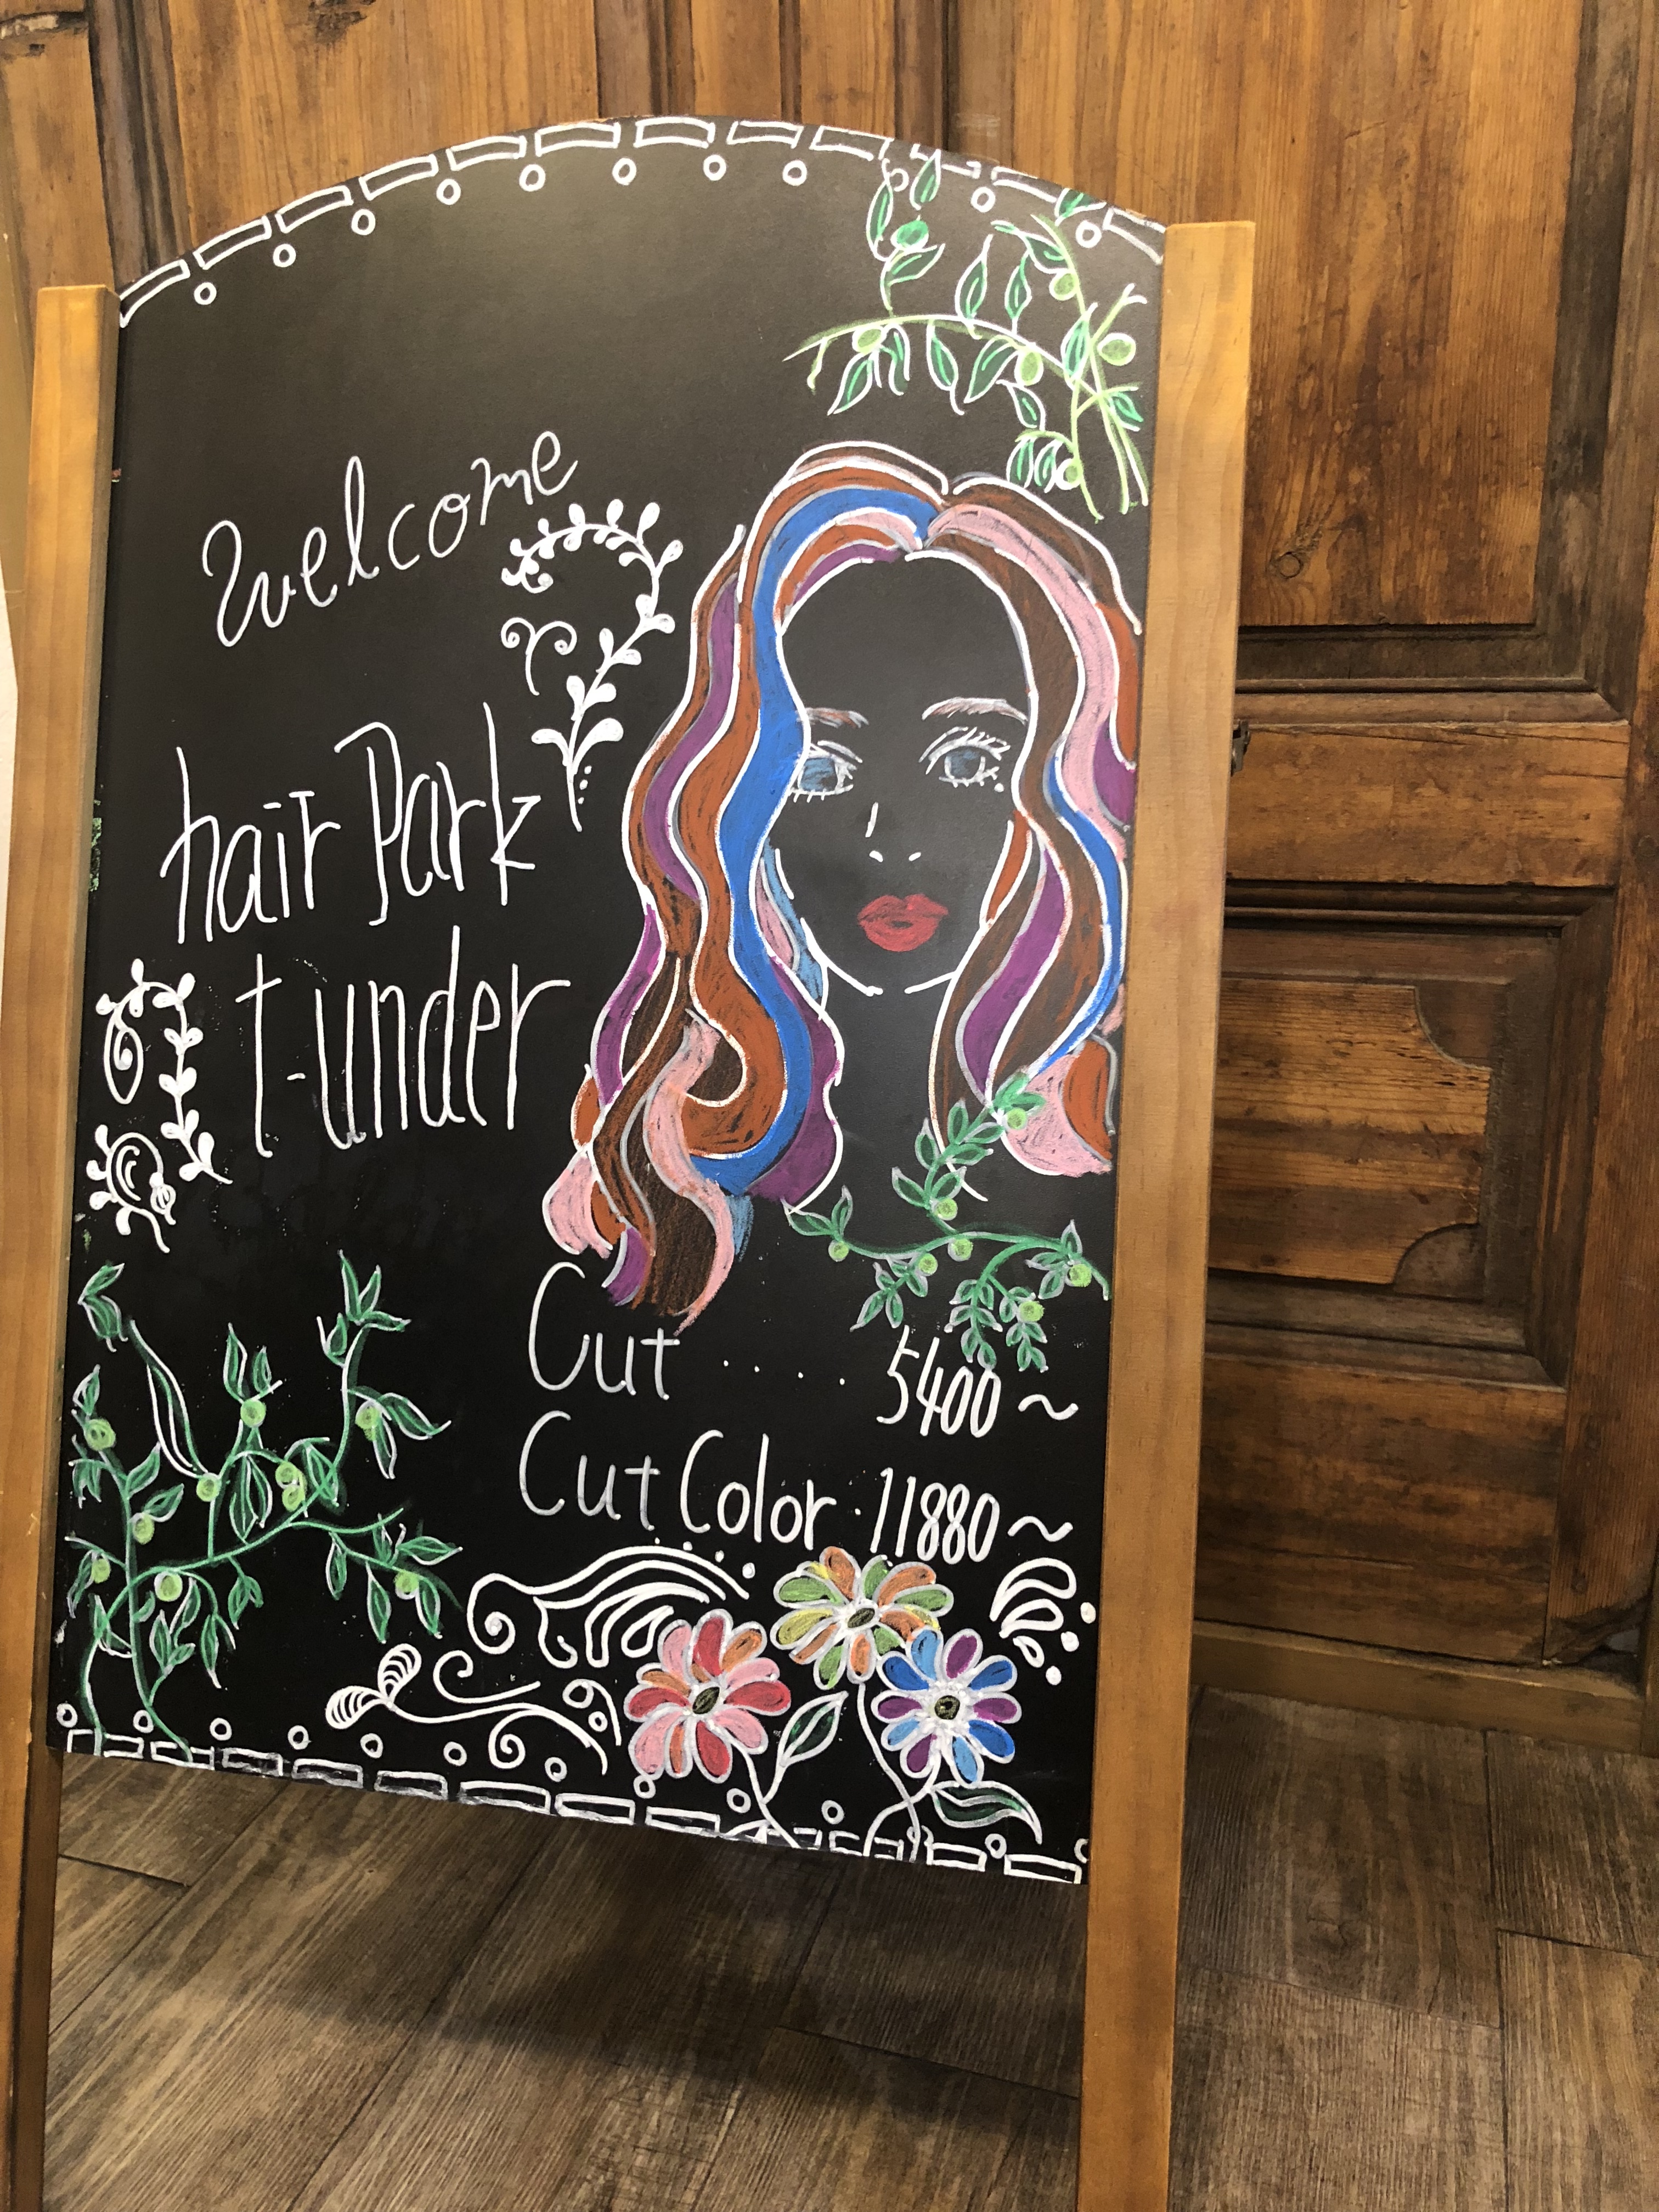 welcome
hair Park
t-under
Cut .... 5400~
Cut Color · 11880~